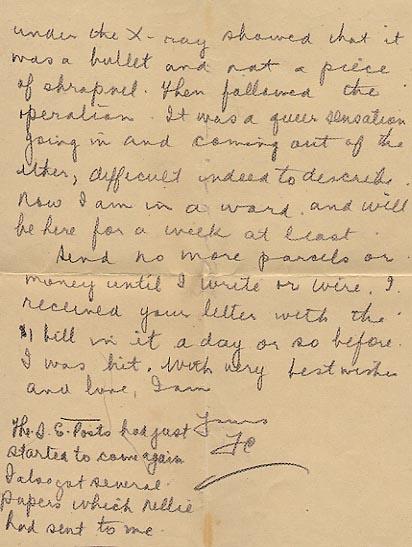 under the X-ray showed that it
was a bullet and not a piece
of shrapnel. Then followed the
operation. It was a queer sensation
going in and coming out of the
ether, difficult indeed to describe.
Now I am in a ward and will
be here for a week at least.
Send no more parcels or
money until I write or wire. I
received your letter with the
$1 bill in it a day or so before
I was hit. With very best wishes
and love, I am
Yours
FC
The S. E. Posts had just
started to come again
I also got several
papers which Nellie
had sent to me.